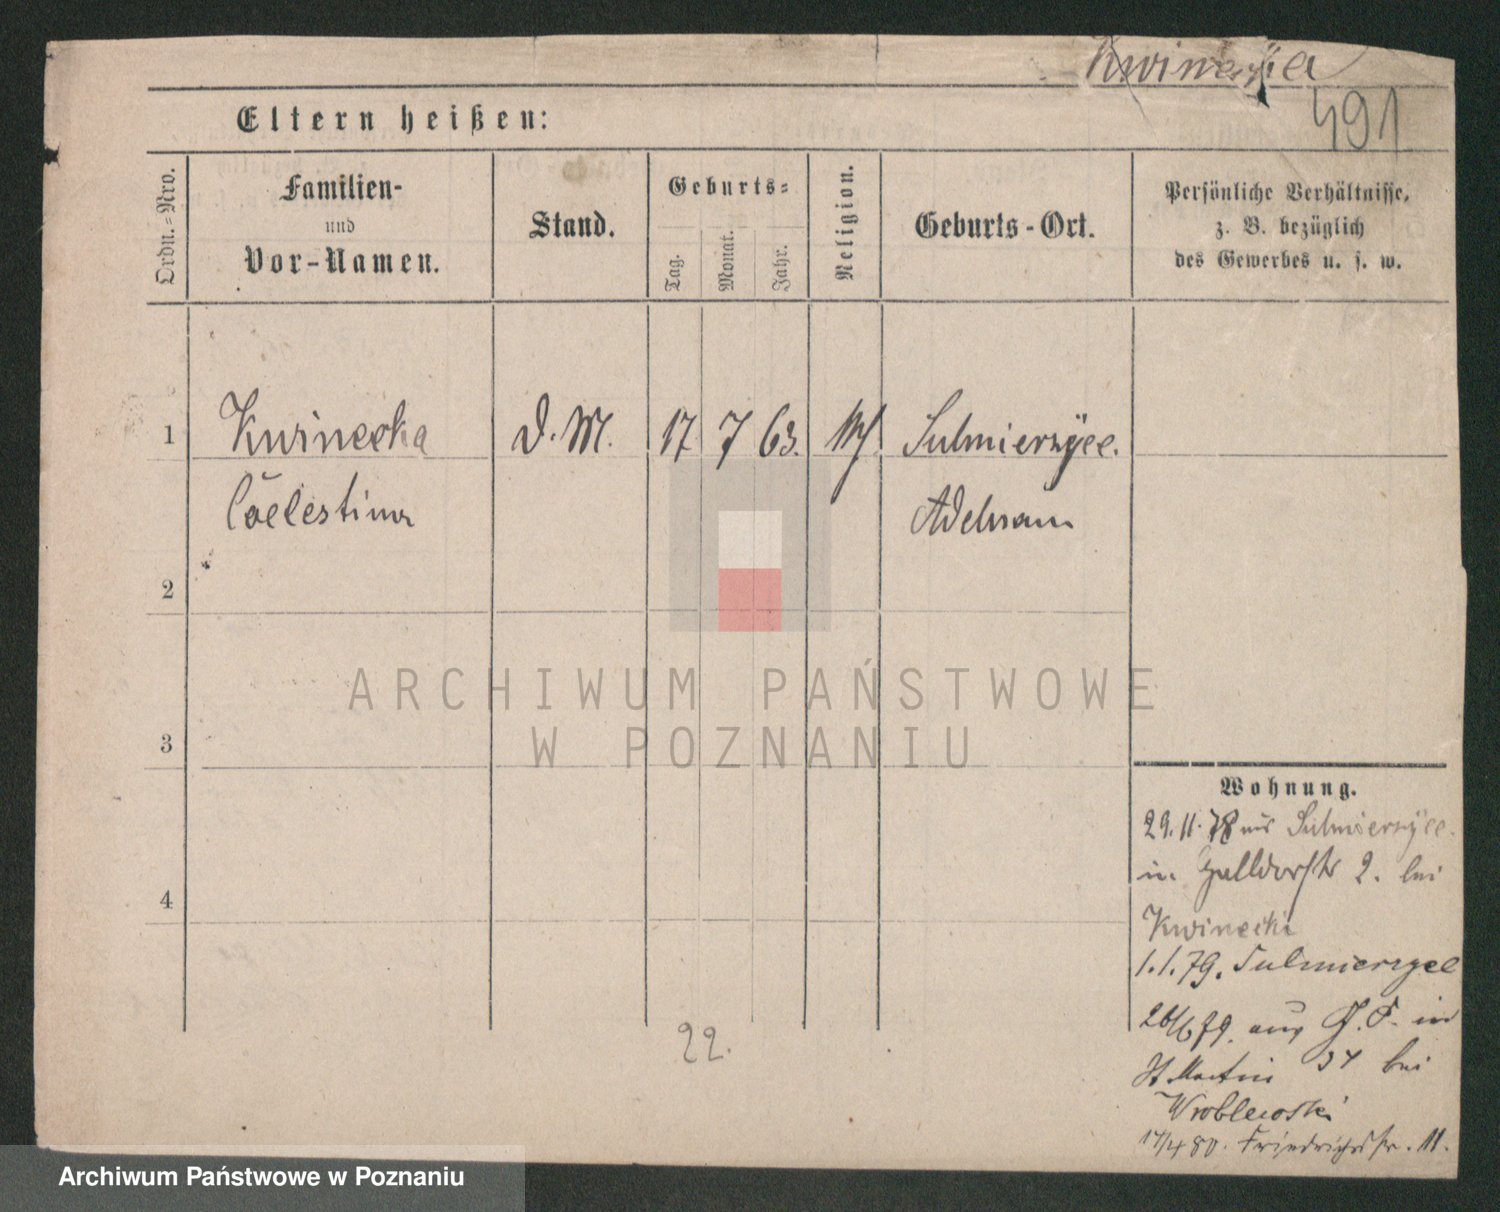 Kwinecka
491
Eltern heißen:
Ordn.-Nro.
Familien-
und
Vor-Namen.
Stand.
Geburts-
Tag.
Monat.
Jahr.
Religion.
Geburts-Ort.
Persönliche Verhältnisse,
z. B. bezüglich
des Gewerbes u. s. w.
1 Kwinecka D. M. 17 7 63. Sulmierzyce.
Coelestina Adelnau
2
3
4
Wohnung.
29.11.78 aus Sulmierzyce.
in Halldorfstr 2. bei
Kwinecki
1.1.79. Sulmierzyce
26/6 79. aus in
St. Martin 34 bei
Wroblewski
17/4 80. Friedrichstr. 11.
22.
ARCHIWUM PAŃSTWOWE
W POZNANIU
Archiwum Państwowe w Poznaniu